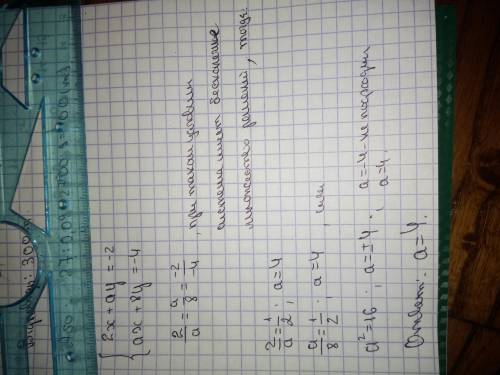 { 2x + ay = -2
{ ax + 8y = -4
2/a = a/8 = -2/-4, при таком условии
система имеет бесконечное
множество решений, тогда:
2/a = 1/2; a = 4
a/8 = 1/2; a = 4, или
a² = 16; a = ±4; a = -4 - не подходит
a = 4
Ответ: a = 4.